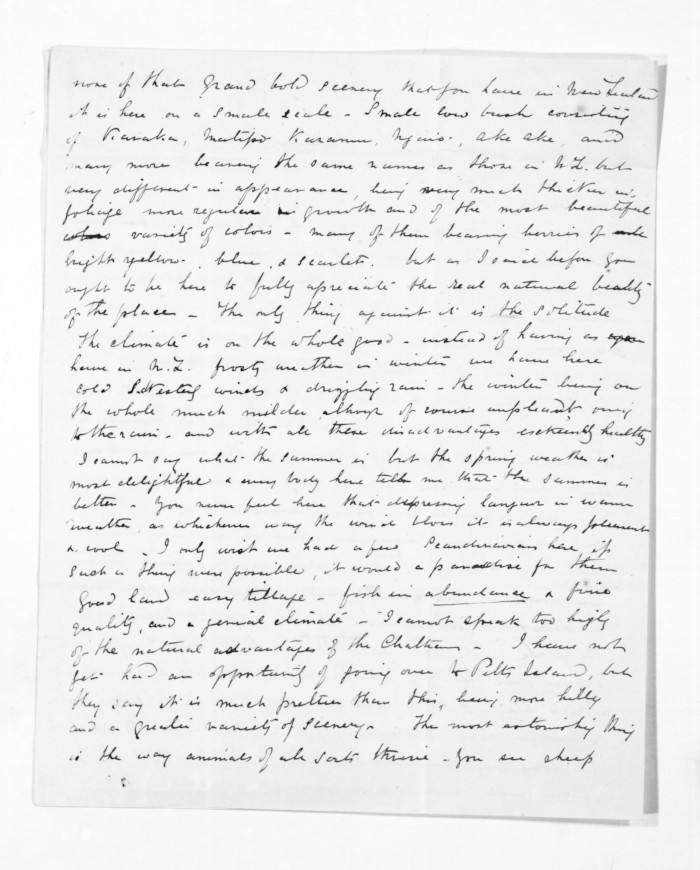 none of that grand bold scenery that you have in New Zealand
it is here on a small scale - Small low bush consisting
of Karaka, Matipo Karamu, Ngaio, ake ake, and
many more bearing the same names as those in N.Z. but
very different in appearance, being very much thicker in
foliage more regular in growth and of the most beautiful
colors variety of colors - many of them bearing berries of
bright yellow, blue, & scarlet. but as I said before you
ought to be here to fully apreciate the real natural beauty
of the place - The only thing against it is the solitude
The climate is on the whole good - instead of having as
have in N.Z. frosty weather in winter we have here
cold S.Westerly winds & drizzling rain - the winter being on
the whole much milder, althoug of course unpleasant owing
to the rain - and with all these disadvantages extremely healthy
I cannot say what the summer is but the spring weather is
most delightful & every body here tells me that the summer is
better - You never feel here that depressing languor in warm
weather, as whichever way the wind blows it is always pleasant
& cool - I only wish we had a few Scandinavians here, if
such a thing were possible, it would a paradise for them
Good land easy tillage - fish in abundance & fine
quality, and a genial climate - I cannot speak too highly
of the natural advantages of the Chathams - I have not
yet had an opportunity of going over to Pitts Island, but
they say it is much prettier than this, being more hilly
and a greater variety of scenery. The most astonishing thing
is the way animals of all sorts thrive - You see sheep